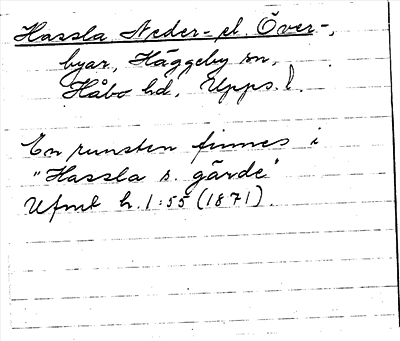 Hassla Neder- el. Över-,
byar, Häggeby sn,
Håbo hd, Upps. l.
En runsten finnes i
"Hassla s. gärde"
Ufmt h. 1:55 (1871).